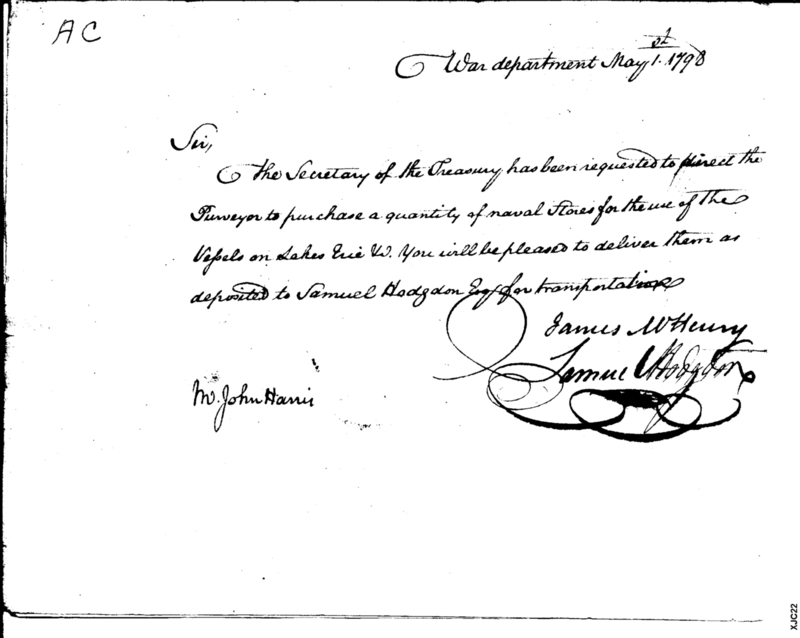 AC
War department May 1.st 1798
Sir,
The Secretary of the Treasury has been requested to direct the
Purveyor to purchase a quantity of naval Stores for the use of the
Vessels on Lakes Erie &c. You will be pleased to deliver them as
deposited to Samuel Hodgdon Esqr for transportation
James McHenry
Samuel Hodgdon
Mr. John Harris
XJC22